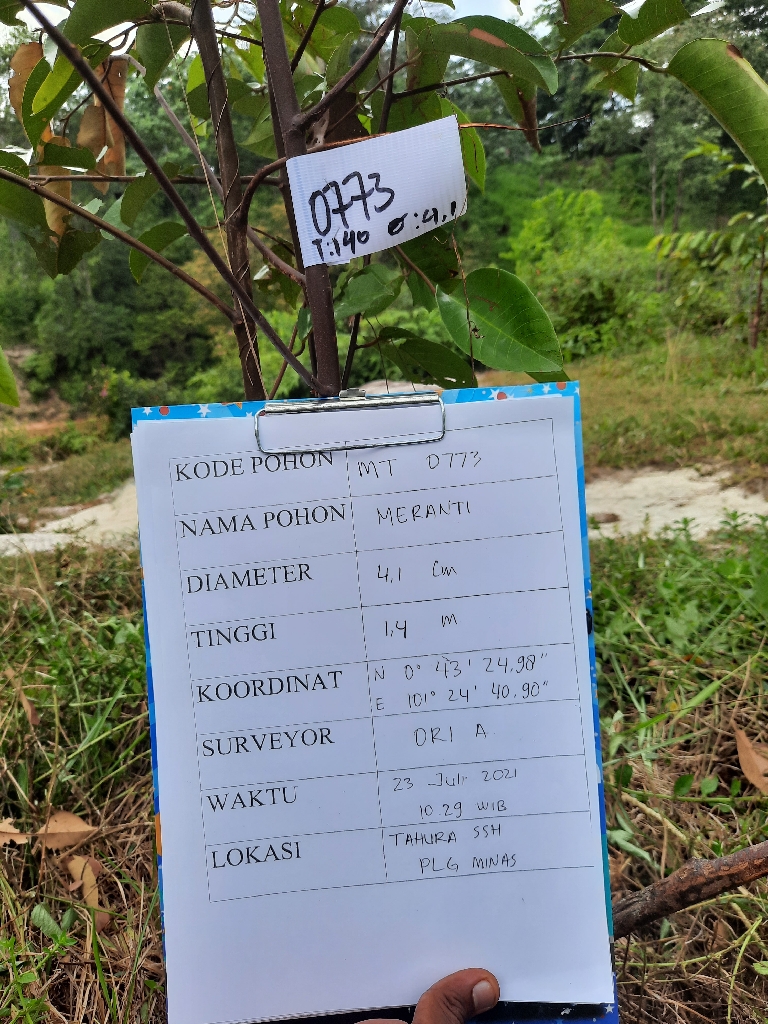 0773
T:140 Ø:4,1
KODE POHON MT 0773
NAMA POHON MERANTI
DIAMETER 4,1 Cm
TINGGI 1,4 m
KOORDINAT N 0° 43' 24.98"
E 101° 24' 40.90"
SURVEYOR ORI A
WAKTU 23 Juli 2021
10.29 WIB
LOKASI TAHURA SSH
PLG MINAS